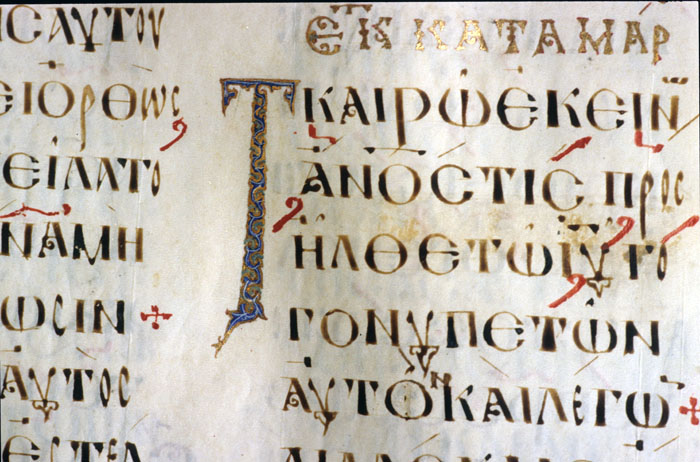 ΙCΑΥΤΟΥ
ΕΙΟΡΘΩC
ΕΙΛΑΤΟ
ΝΑΜΗ
ΩCΙΝ
ΑΥΤΟC
ΕCΤΕΛ
ΚΑΤΑΜΑΡ
ΤΚΑΙΡΩΕΚΕΙΝ
ΑΝΟCΤΙCΠΡΟC
ΗΛΘΕΤΩΙΥΓΟ
ΓΟΝΥΠΕΤΩΝ
ΑΥΤΟΝΚΑΙΛΕΓΩ